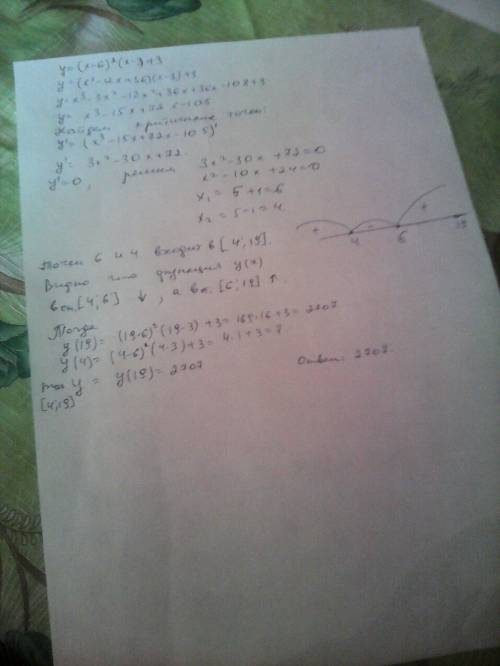 y=(x-6)²(x-3)+3
y=(x²-12x+36)(x-3)+3
y=x³-3x²-12x²+36x+36x-108+3
y= x³-15x+72x-105
Найдем критические точки:
y'=(x³-15x+72x-105)'
y'= 3x²-30x+72.
y'=0, решим 3x²-30x+72=0
x²-10x+24=0
x₁ = 5+1=6
x₂ = 5-1=4.
+ - +
4 6 19
Точки 6 и 4 входят в [4;19].
Видно что функция y(x)
в от.[4;6] ↓, а в от. [6;19] ↑.
Тогда
y(19)= (19-6)²(19-3)+3=169·16+3=2707
y(4)=(4-6)²(4-3)+3=4·1+3=7
max y = y(19)=2707
[4;19]
Ответ: 2707.